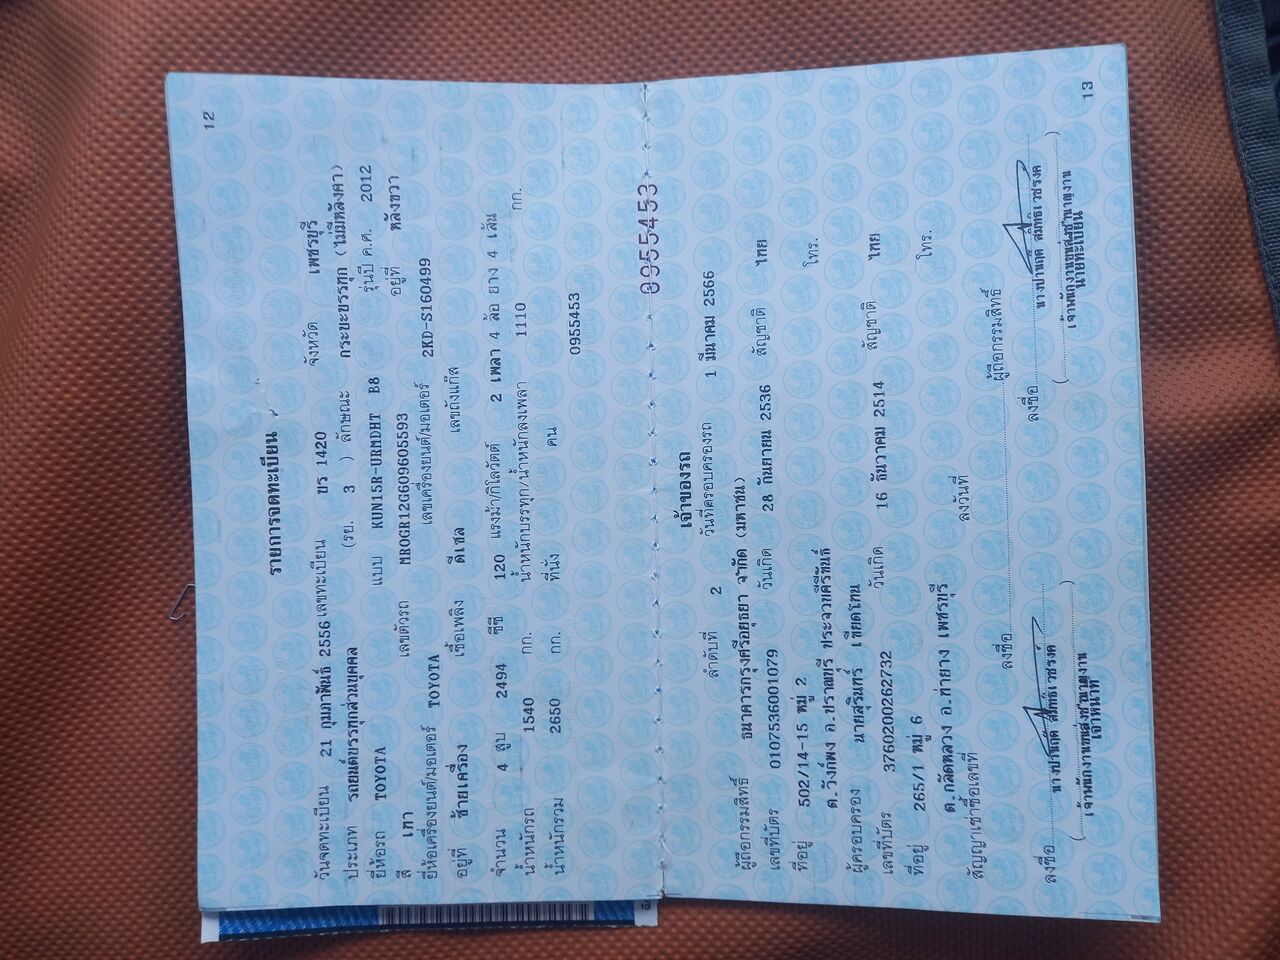 12
รายการจดทะเบียน
วันจดทะเบียน 21 กุมภาพันธ์ 2556 เลขทะเบียน ขร 1420 จังหวัด เพชรบุรี
ประเภท รถยนต์บรรทุกส่วนบุคคล (รย. 3 ) ลักษณะ กระบะบรรทุก (ไม่มีหลังคา)
ยี่ห้อรถ TOYOTA แบบ KUN15R-URMDHT B8 รุ่นปี ค.ศ. 2012
สี เทา เลขตัวรถ MR0GR12G609605593 อยู่ที่ หลังขวา
ยี่ห้อเครื่องยนต์/มอเตอร์ TOYOTA เลขเครื่องยนต์/มอเตอร์ 2KD-S160499
อยู่ที่ ซ้ายเครื่อง เชื้อเพลิง ดีเซล เลขถังแก๊ส
จำนวน 4 สูบ 2494 ซีซี 120 แรงม้า/กิโลวัตต์ 2 เพลา 4 ล้อ ยาง 4 เส้น
น้ำหนักรถ 1540 กก. น้ำหนักบรรทุก/น้ำหนักลงเพลา 1110 กก.
น้ำหนักรวม 2650 กก. ที่นั่ง คน
0955453
0955453
เจ้าของรถ
ลำดับที่ 2 วันที่ครอบครองรถ 1 มีนาคม 2566
ผู้ถือกรรมสิทธิ์ ธนาคารกรุงศรีอยุธยา จำกัด (มหาชน)
เลขที่บัตร 0107536001079 วันเกิด 28 กันยายน 2536 สัญชาติ ไทย
ที่อยู่ 502/14-15 หมู่ 2 โทร.
ต.วังก์พง อ.ปราณบุรี ประจวบคีรีขันธ์
ผู้ครอบครอง นายสุรินทร์ เทียดโทน
เลขที่บัตร 3760200262732 วันเกิด 16 ธันวาคม 2514 สัญชาติ ไทย
ที่อยู่ 265/1 หมู่ 6 โทร.
ต.กลัดหลวง อ.ท่ายาง เพชรบุรี
สัญญาเช่าซื้อเลขที่ ลงวันที่
ลงชื่อ ผู้ถือกรรมสิทธิ์
ลงชื่อ ลงชื่อ
เจ้าพนักงานขนส่งชำนาญงาน เจ้าพนักงานขนส่งชำนาญงาน
เจ้าหน้าที่ นายทะเบียน
13